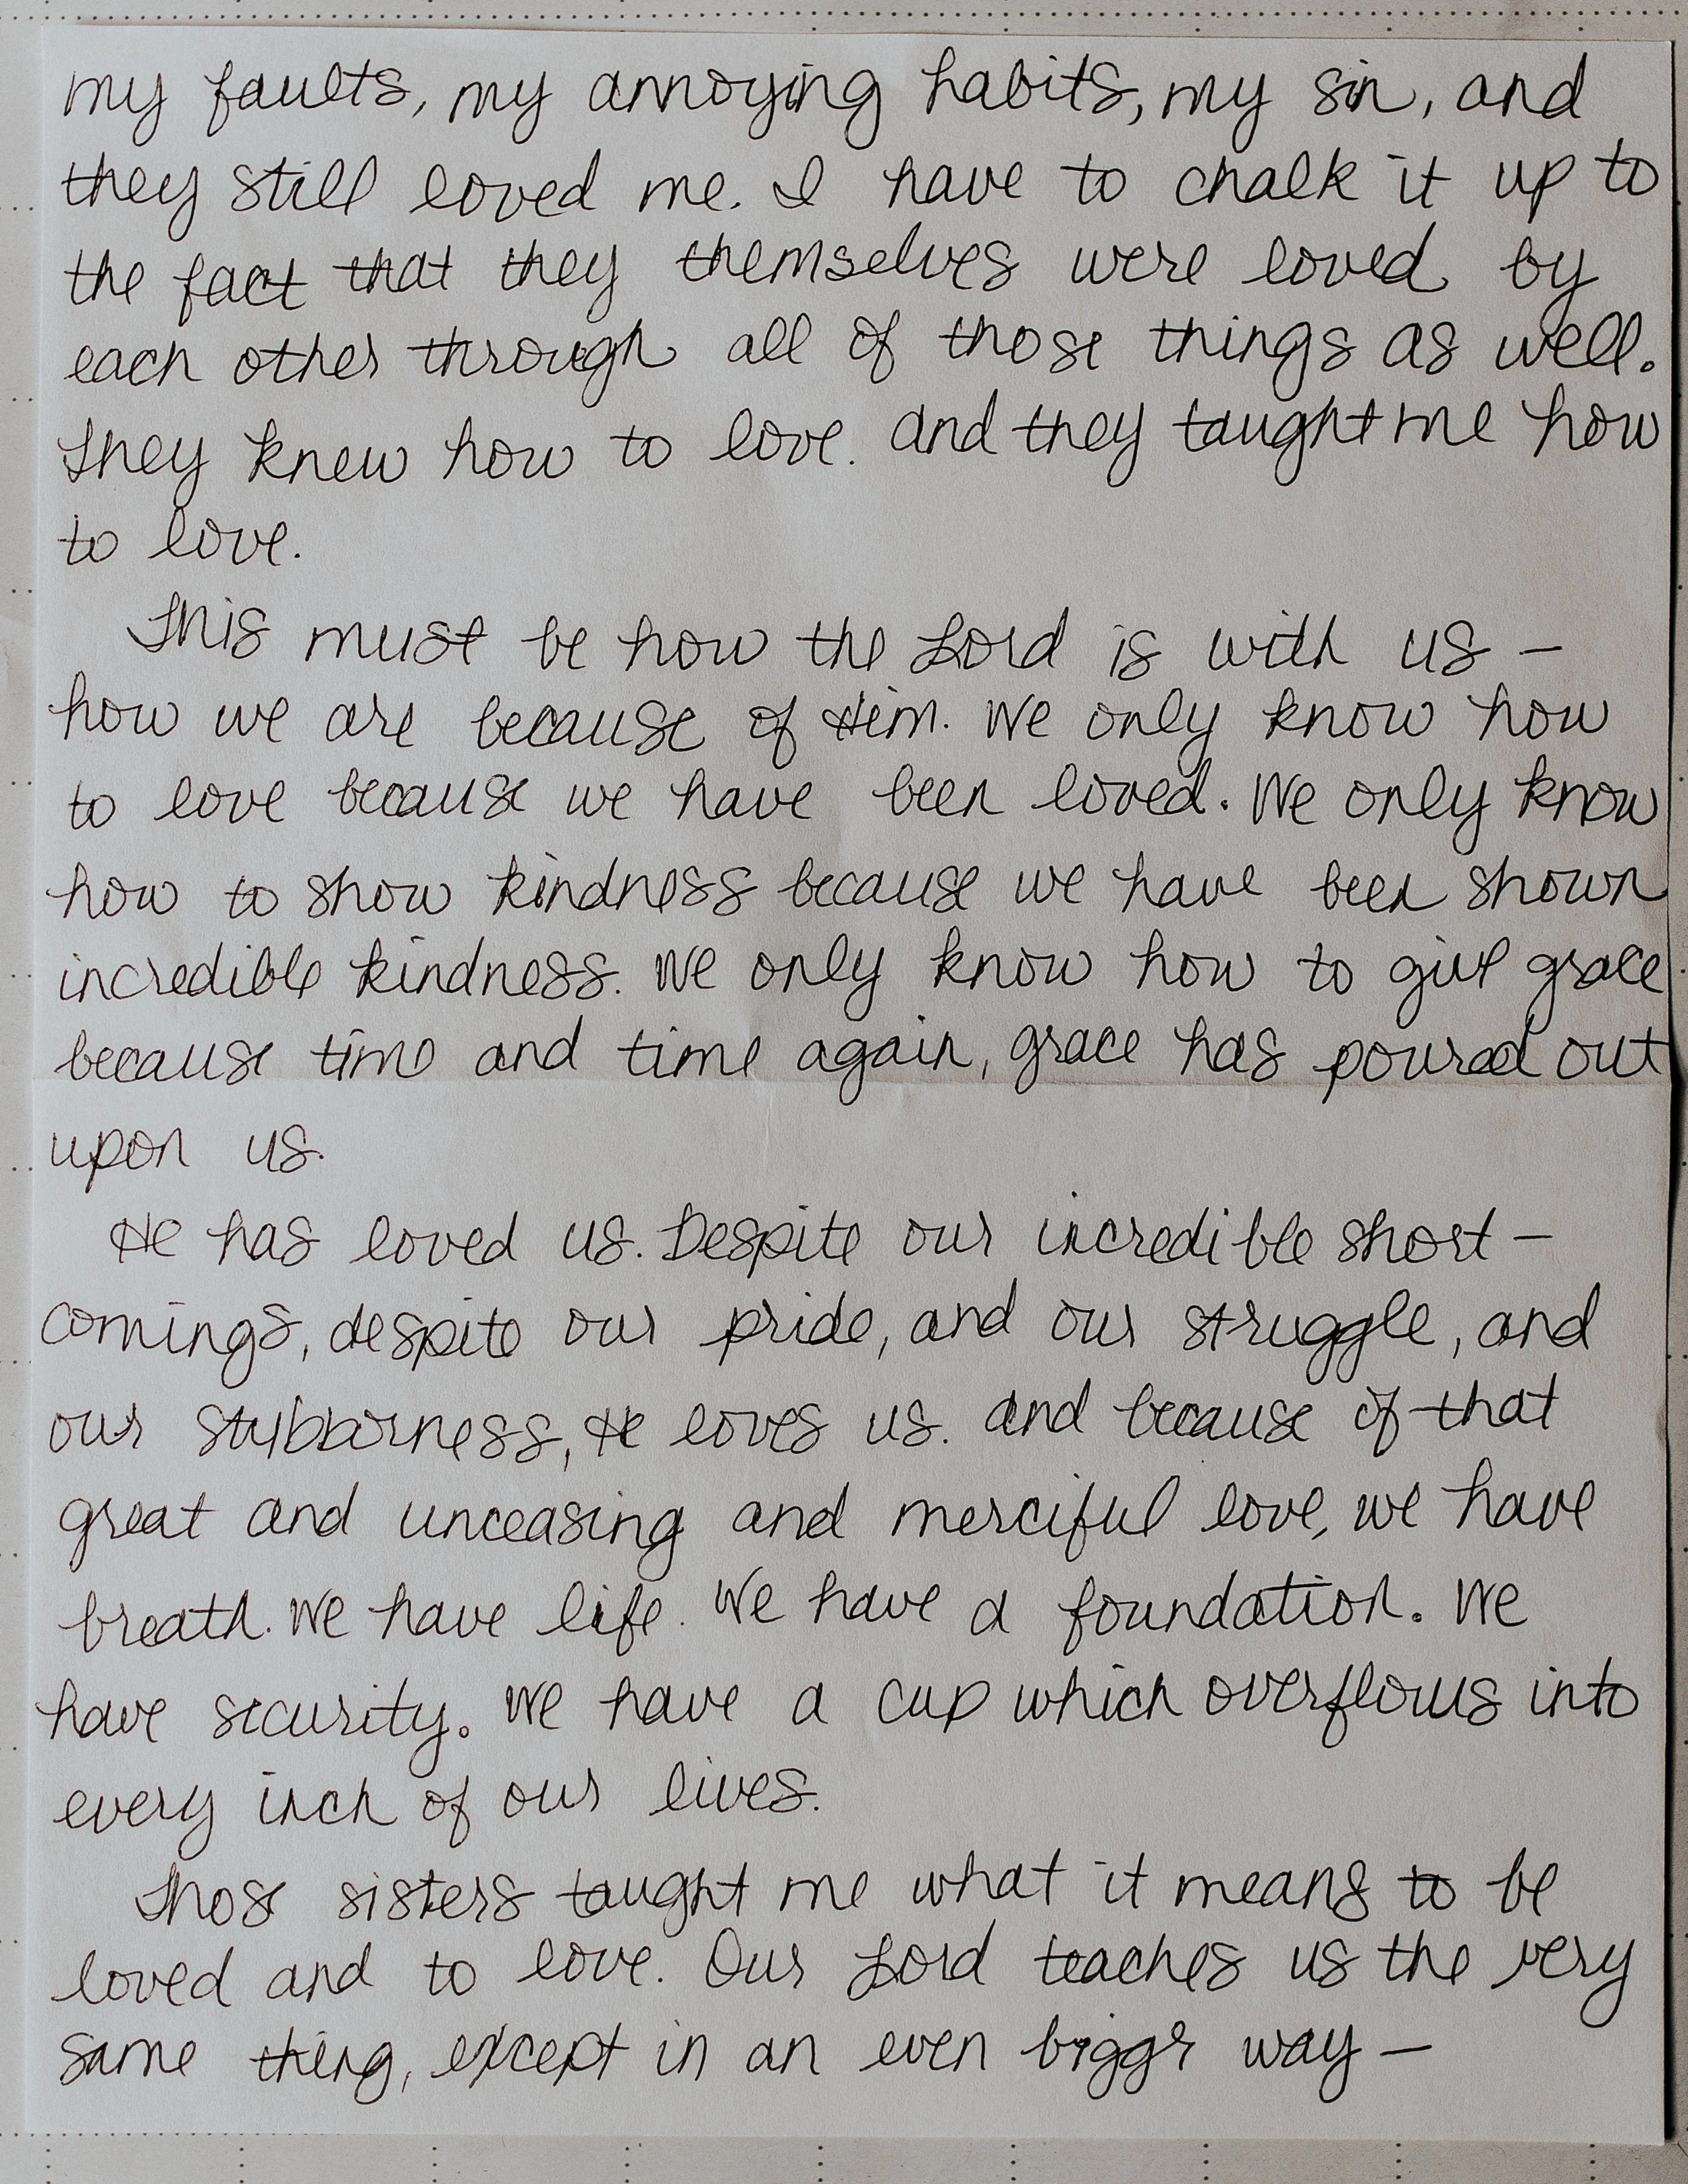 my faults, my annoying habits, my sin, and
they still loved me. I have to chalk it up to
the fact that they themselves were loved by
each other through all of those things as well.
They knew how to love. And they taught me how
to love.
This must be how the Lord is with us –
how we are because of Him. We only know how
to love because we have been loved. We only know
how to show kindness because we have been shown
incredible kindness. We only know how to give grace
because time and time again, grace has poured out
upon us.
He has loved us. Despite our incredible short-
comings, despite our pride, and our struggle, and
our stubborness, He loves us. And because of that
great and unceasing and merciful love, we have
breath. We have life. We have a foundation. We
have security. We have a cup which overflows into
every inch of our lives.
Those sisters taught me what it means to be
loved and to love. Our Lord teaches us the very
same thing, except in an even biggr way –